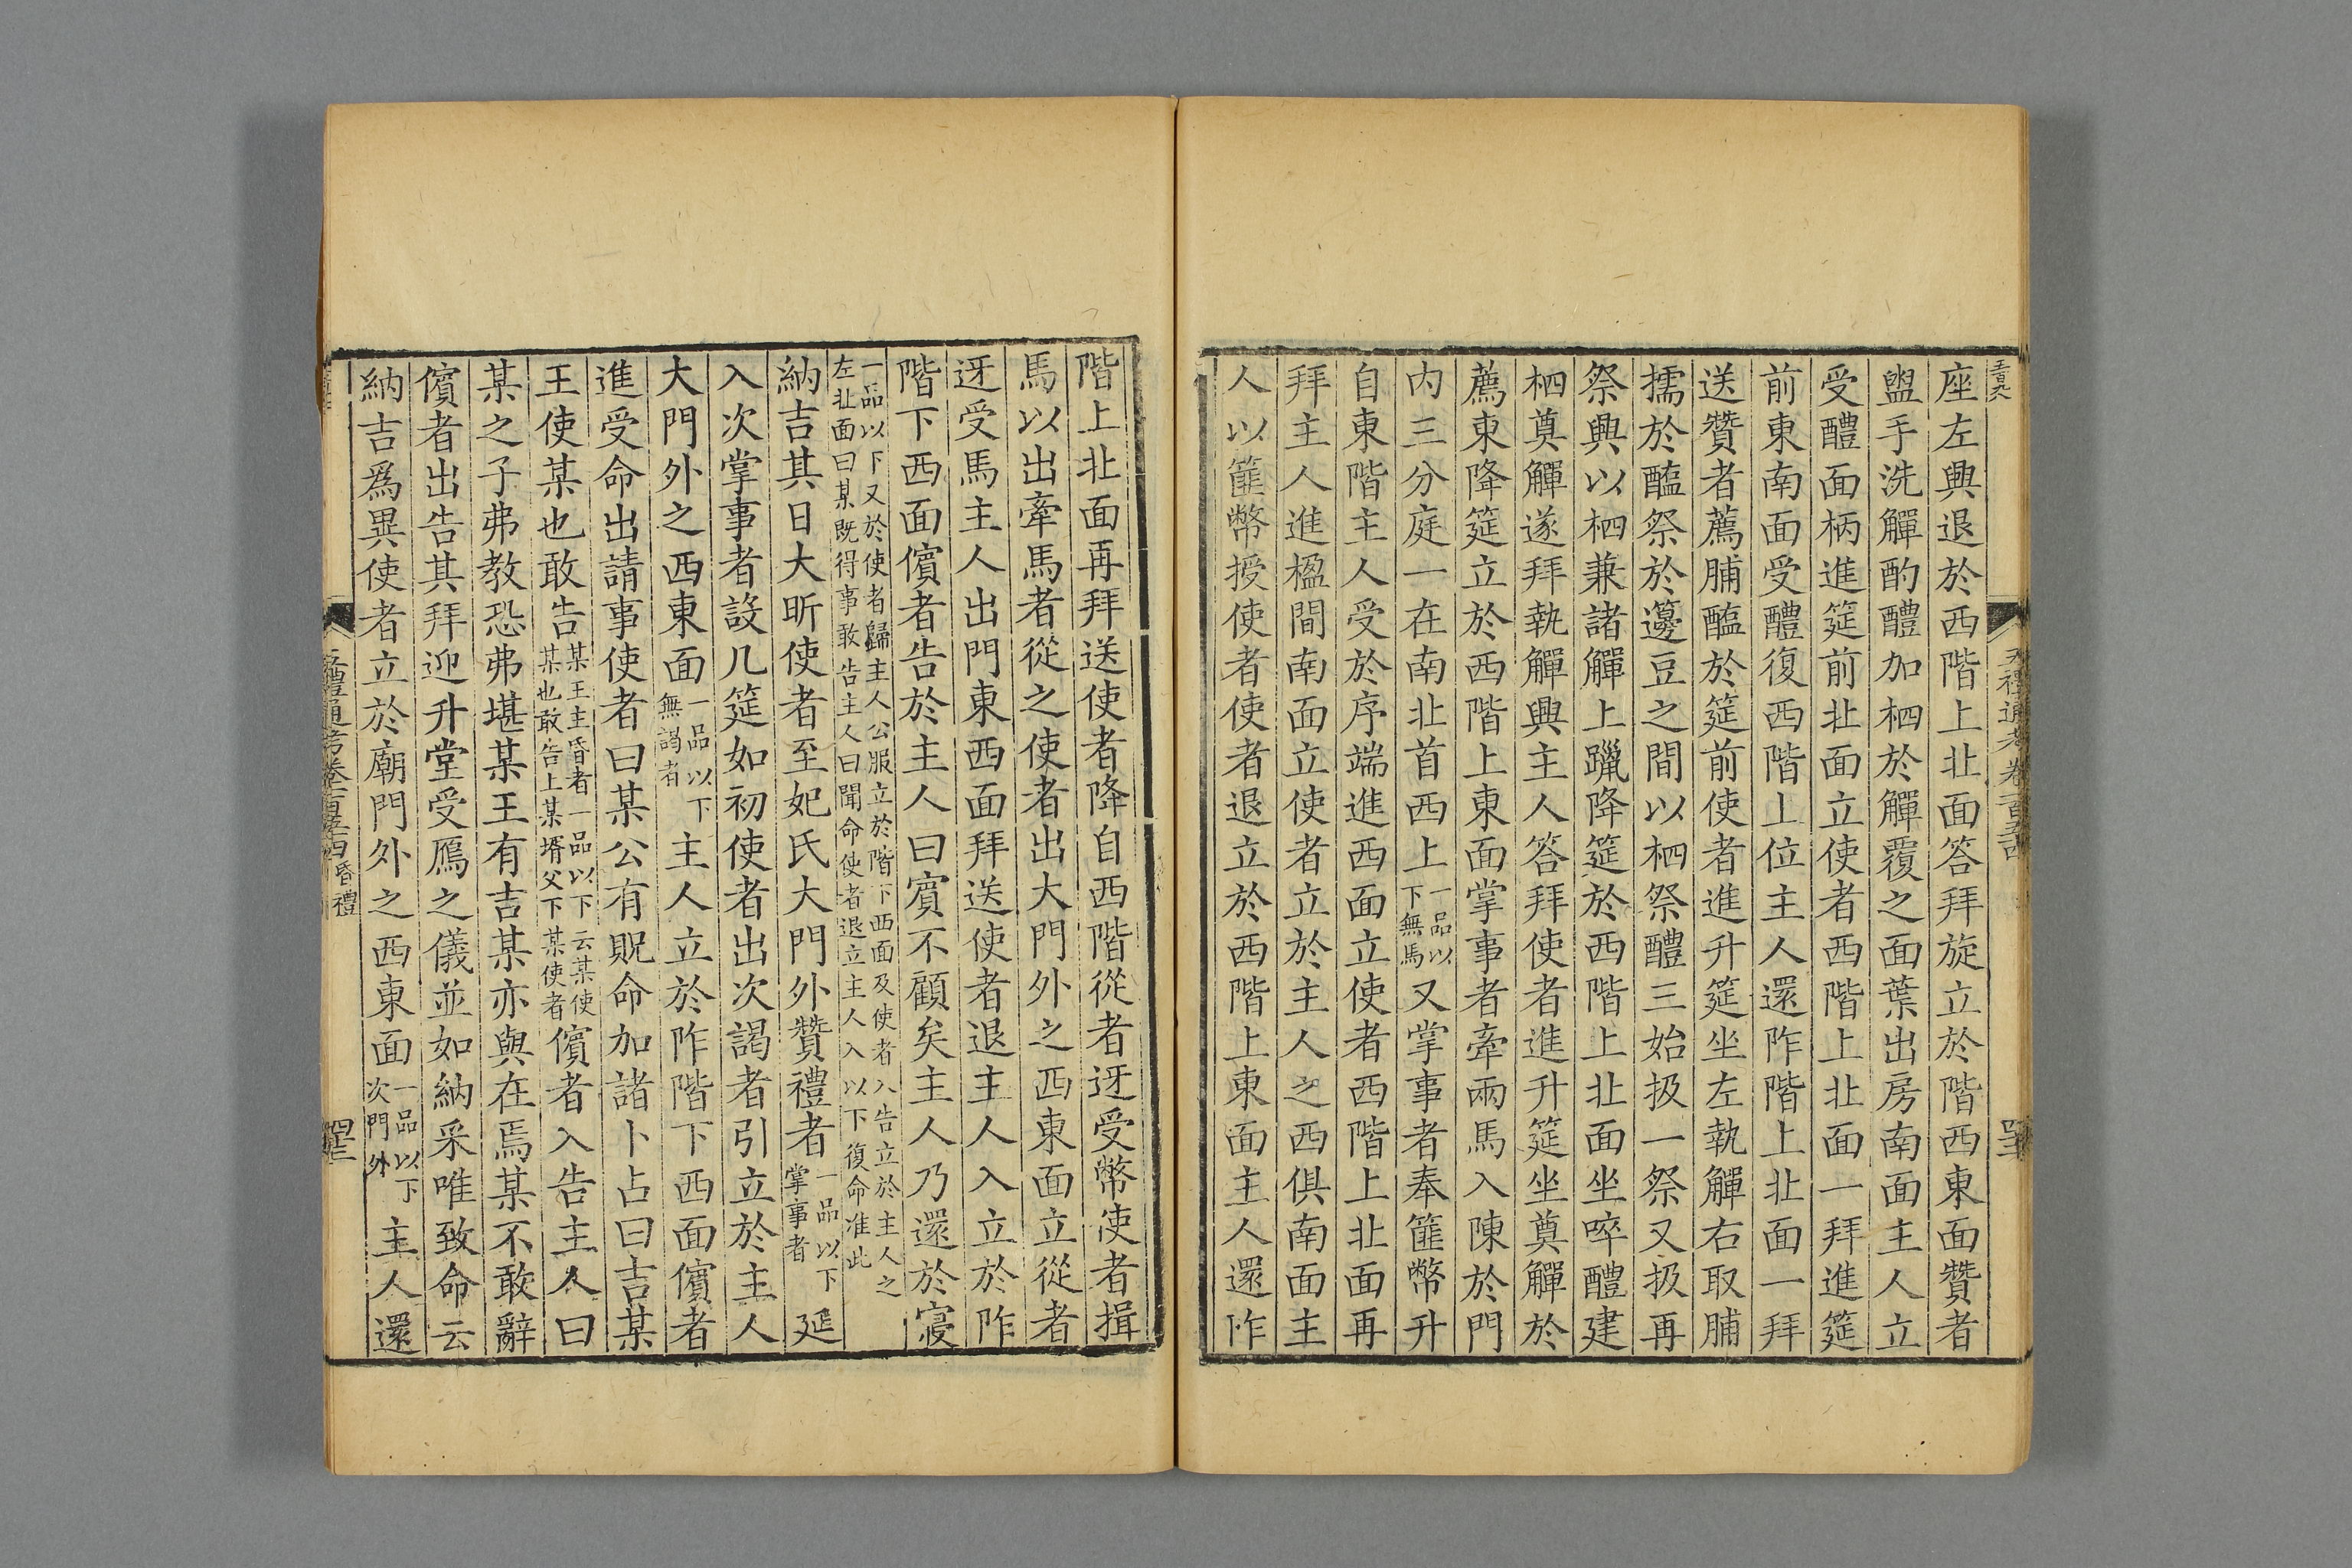 座左興退於西階上北面答拜旋立於階西東面贊者
盥手洗觶酌醴加柶於觶覆之面葉出房南面主人立
受醴面柄進筵前北面立使者西階上北面一拜進筵
前東南面受醴復西階上位主人還阼階上北面一拜
送贊者薦脯醢於筵前使者進升筵坐左執觶右取脯
擩於醢祭於籩豆之間以柶祭醴三始扱一祭又扱再
祭興以柶兼諸觶上躐降筵於西階上北面坐啐醴建
柶奠觶遂拜執觶興主人答拜使者進升筵坐奠觶於
薦東降筵立於西階上東面掌事者牽兩馬入陳於門
内三分庭一在南北首西上一品以下無馬又掌事者奉篚幣升
自東階主人受於序端進西面立使者西階上北面再
拜主人進楹間南面立使者立於主人之西俱南面主
人以篚幣授使者使者退立於西階上東面主人還阼
階上北面再拜送使者降自西階從者迓受幣使者揖
馬以出牽馬者從之使者出大門外之西東面立從者
迓受馬主人出門東西面拜送使者退主人入立於阼
階下西面儐者告於主人曰賓不顧矣主人乃還於寢
一品以下又於使者歸主人公服立於階下西面及使者入告立於主人之
左北面曰某既得事敢告主人曰聞命使者退立主人入以下復命准此
納吉其日大昕使者至妃氏大門外贊禮者一品以下掌事者延
入次掌事者設几筵如初使者出次謁者引立於主人
大門外之西東面一品以下無謁者主人立於阼階下西面儐者
進受命出請事使者曰某公有貺命加諸卜占曰吉某
王使某也敢告某王主昏者一品以下云某使某也敢告上某壻父下某使者儐者入告主人曰
某之子弗教恐弗堪某王有吉某亦與在焉某不敢辭
儐者出告其拜迎升堂受鴈之儀並如納采唯致命云
納吉爲異使者立於廟門外之西東面一品以下次門外主人還
五禮通考卷一百五十四昏禮